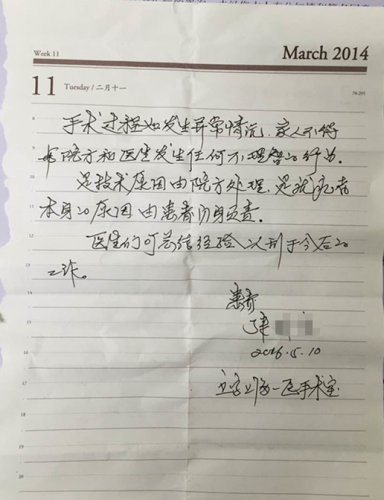 Week 11
March 2014
11 Tuesday / 二月十一
70-295
8
手术过程如发生异常情况,家人不得
9
与院方和医生发生任何不理智的行为.
10
是技术原因由院方处理,是我患者
11
本身的原因由患者自身负责.
12
医生们可总结经验以利于今后的
13
工作。
14
患者
15
2016.5.10
一医手术室
16
17
18
19
20